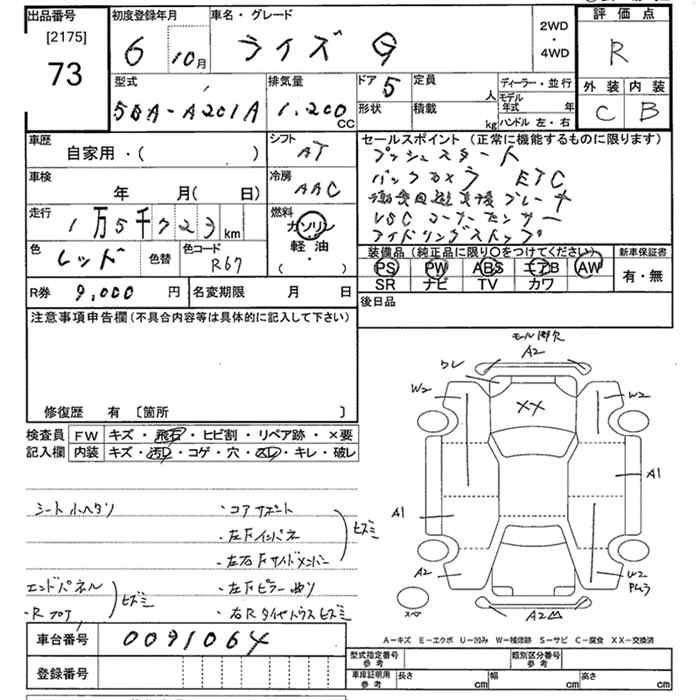 出品番号
[2175]
73
初度登録年月
6 10月
車名・グレード
ライズ G
2WD
・
4WD
評価点
R
外装 内装
C B
型式
5BA-A201A
排気量
1.200 CC
ドア 5
定員 人
形状
積載 kg
ディーラー・並行
モデル年式 年
ハンドル 左・右
車歴
自家用・( )
シフト
AT
車検
年 月( 日)
冷房
AAC
走行
1万5千723 km
燃料
ガソリン
軽油
( ・ )
色
レッド
色替
色コード
R67
R券 9,000 円
名変期限 月 日
セールスポイント (正常に機能するものに限ります)
プッシュスタート
バックカメラ ETC
VSC コーナーセンサー
アイドリングストップ
装備品 (純正品に限り○をつけてください)
PS PW ABS エアB AW
SR ナビ TV カワ
新車保証書
有・無
後日品
注意事項申告欄 (不具合内容等は具体的に記入して下さい)
修復歴 有 〔箇所 〕
検査員記入欄
FW キズ・飛石・ヒビ割・リペア跡・×要
内装 キズ・汚レ・コゲ・穴・スレ・キレ・破レ
シート小ヘタリ
・コアサポート
・左Fインパネ
・左右Fサイドメンバー
ヒズミ
エンドパネル
・Rフロア
ヒズミ
・左Fピラー曲り
・右Rタイヤハウスヒズミ
モール脚欠
A2
ワレ
W2
XX
W2
A1
A1
A2
W2
A2
スペア
A-キズ E-エクボ U-凹み W-補修跡 S-サビ C-腐食 XX-交換済
車台番号 0091064
登録番号
型式指定番号 参考
類別区分番号 参考
車庫証明用 参考
長さ cm 幅 cm 高さ cm